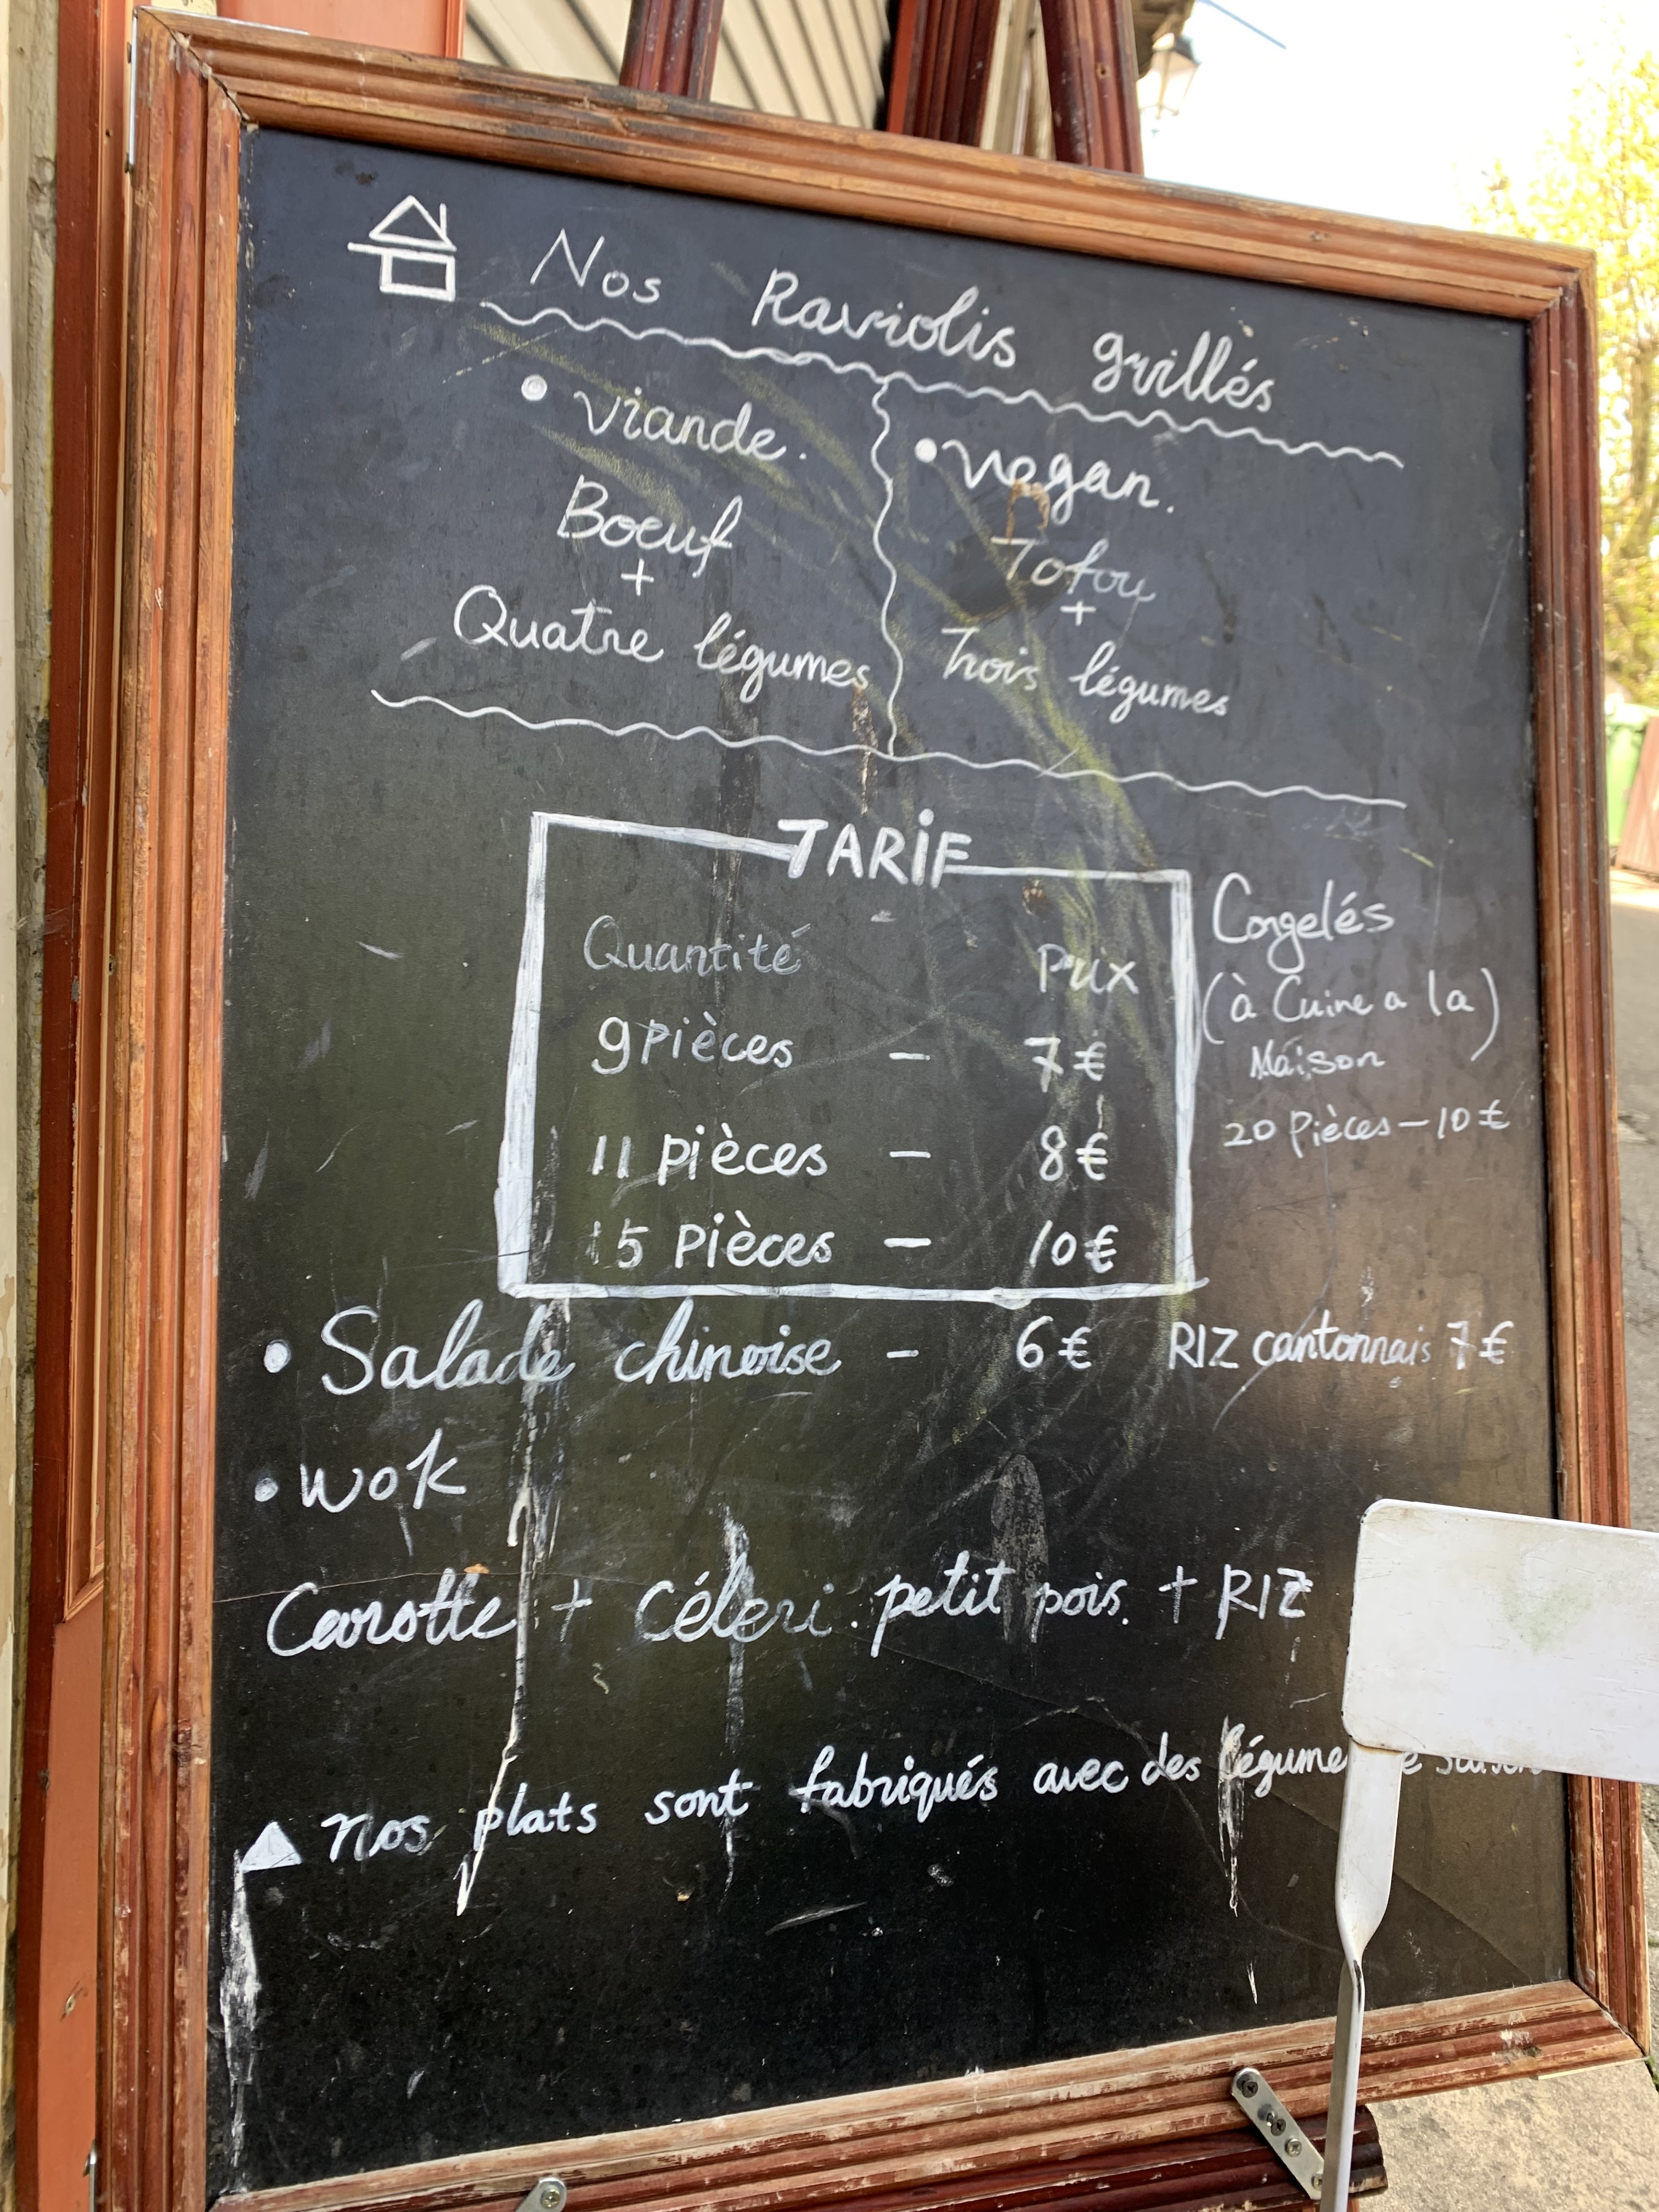 Nos Raviolis grillés
• viande.
Boeuf
+
Quatre légumes
• vegan.
Tofou
+
Trois légumes
TARiF
Quantité Prix
9 pièces – 7 €
11 pièces – 8 €
15 pièces – 10 €
Congelés
(à Cuire a la)
Maison
20 pièces – 10 €
• Salade chinoise – 6 € RIZ cantonnais 7 €
• wok
Carotte + Céleri. petit pois. + RIZ
▲ nos plats sont fabriqués avec des légume